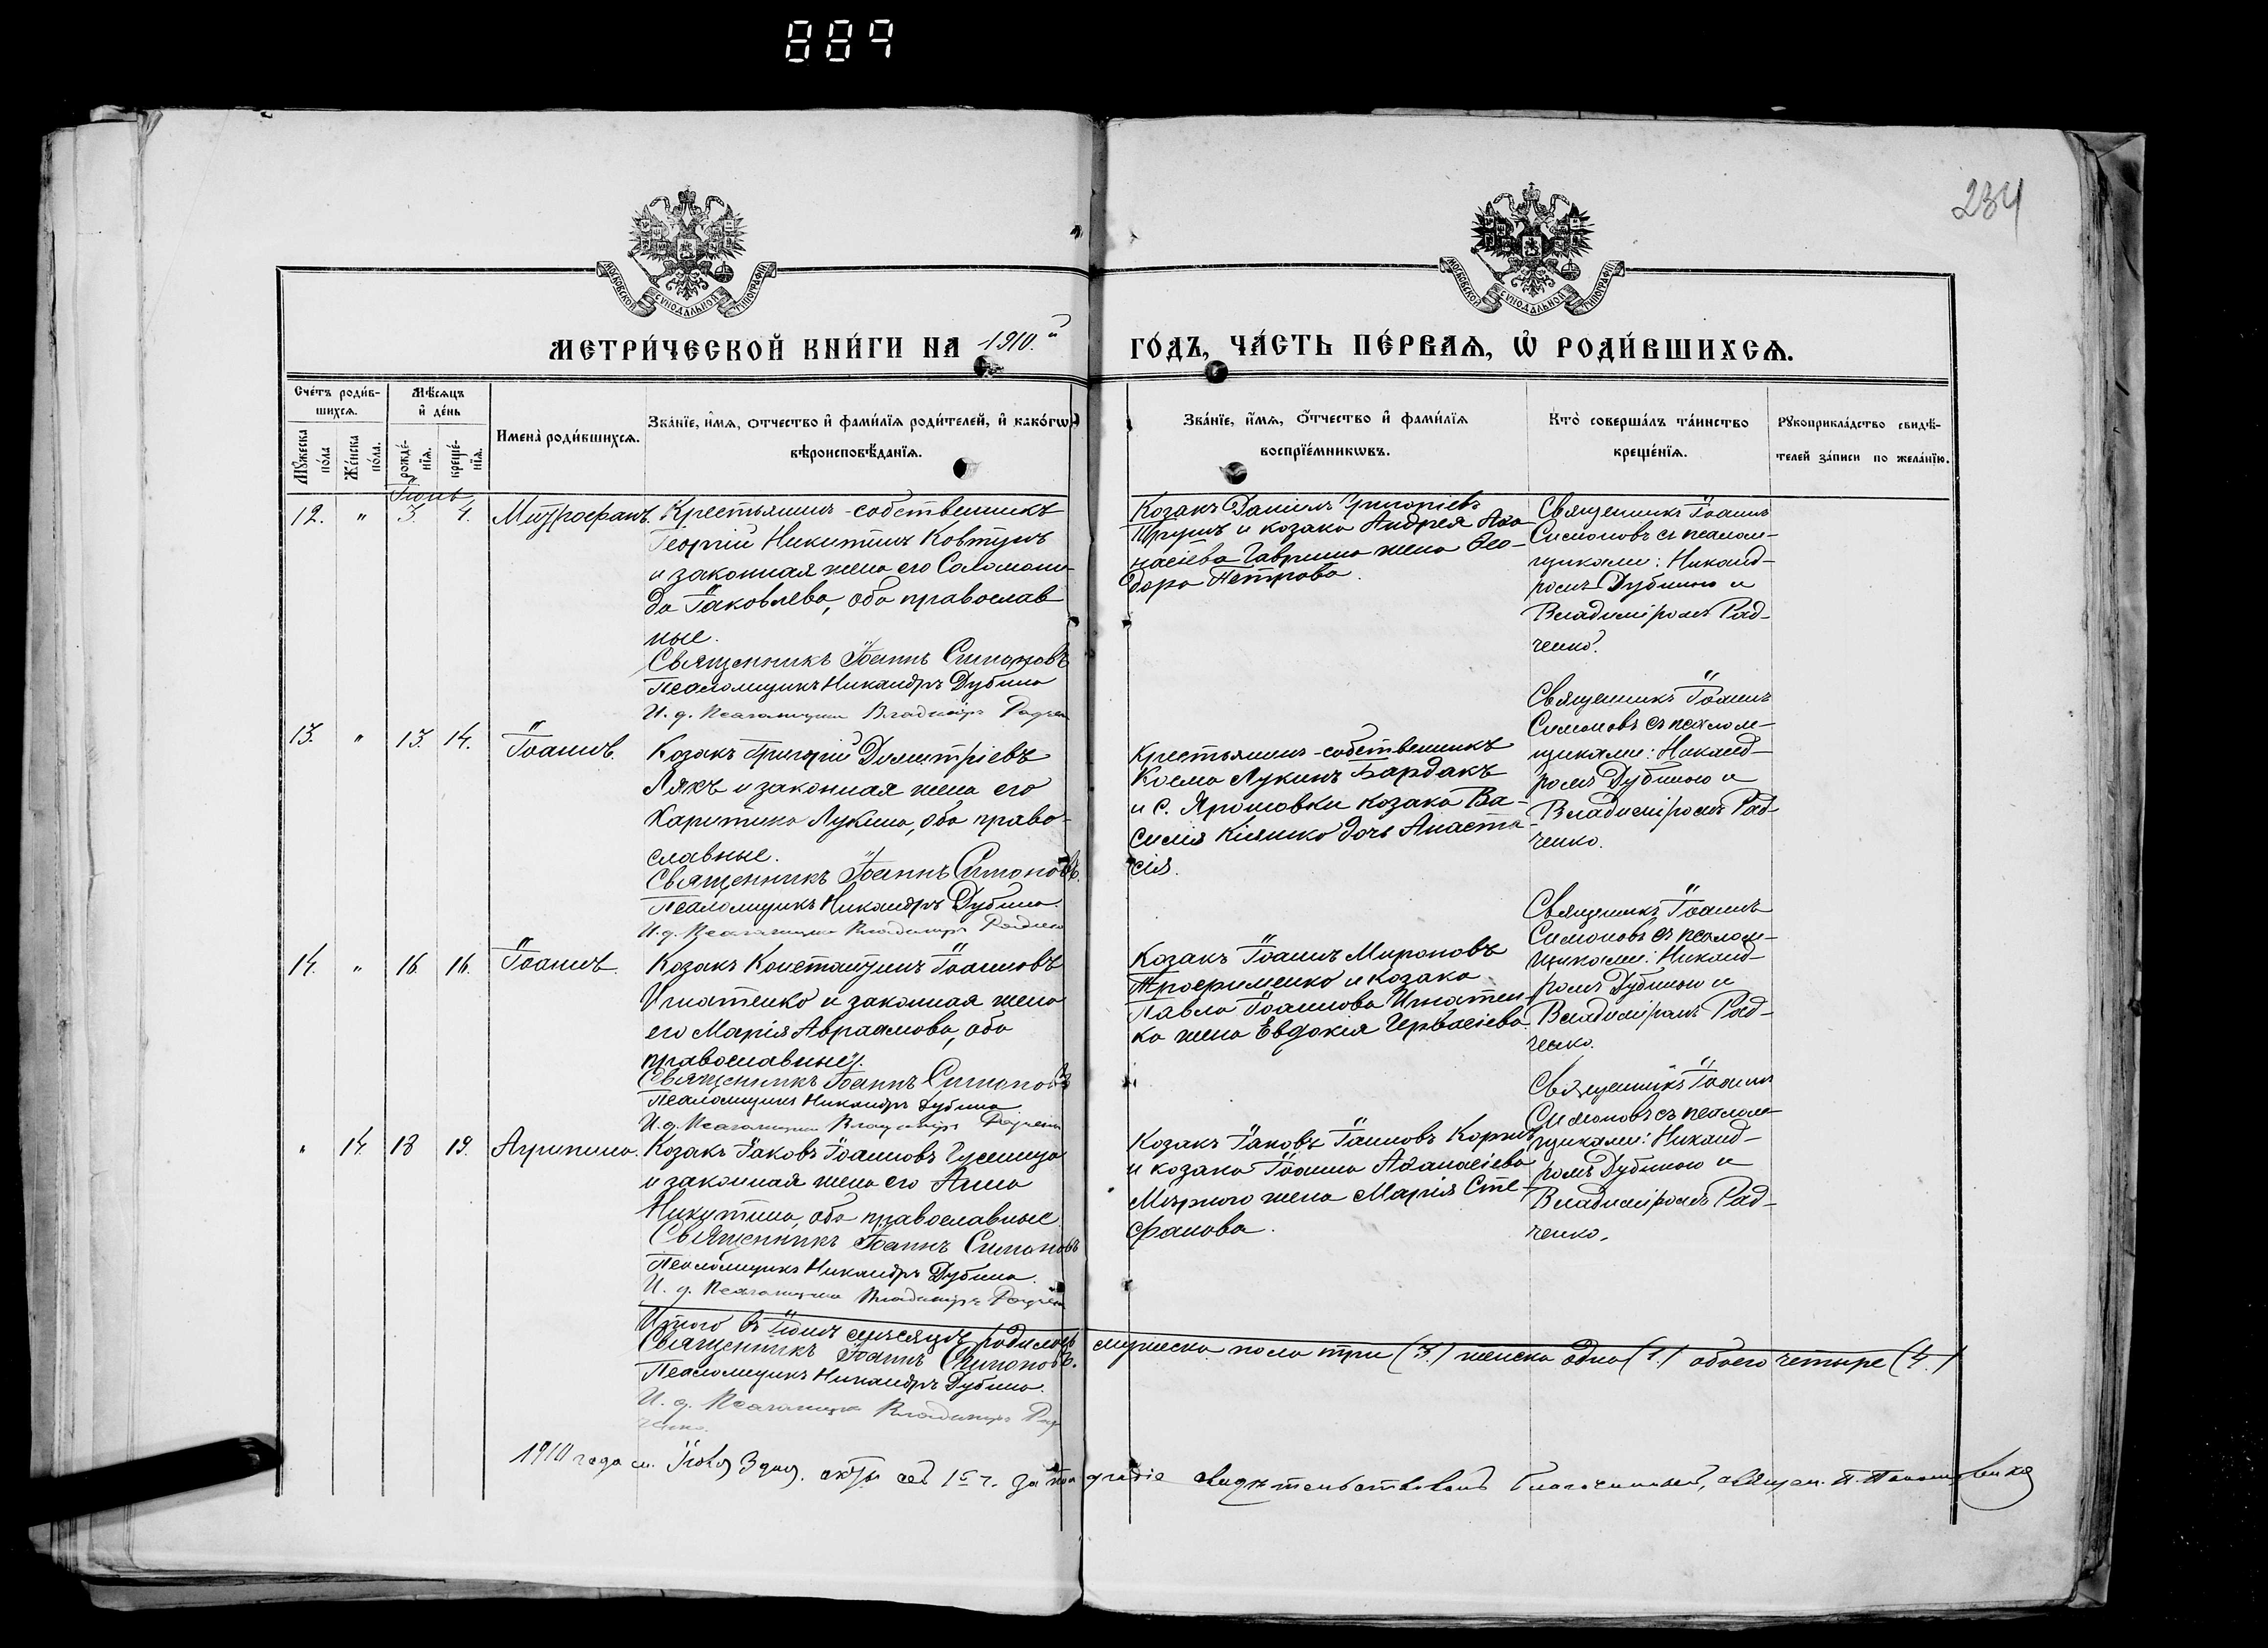 889
234
МОСКОВСКОЙ СУНОДАЛЬНОЙ ТИПОГРАФІИ
МОСКОВСКОЙ СУНОДАЛЬНОЙ ТИПОГРАФІИ
МЕТРИ́ЧЕСКОЙ КНИ́ГИ НА 1910.й
ГО́ДЪ, ЧА́СТЬ ПЕ́РВАѦ, Ѡ҆ РОДИ́ВШИХСѦ.
Сче́тъ роди́в-
шихсѧ.
Мѹ́жеска
по́ла
Же́нска
по́ла.
Мѣ́сѧцъ
и҆ де́нь
рожде́-
нїѧ.
креще́-
нїѧ.
Имена̀ роди́вшихсѧ.
Зва́нїе, и҆́мѧ, ѻ҆́тчество и҆ фами́лїѧ роди́телей, и҆ како́гѡ
вѣроисповѣ́данїѧ.
Зва́нїе, и҆́мѧ, ѻ҆́тчество и҆ фами́лїѧ
воспрїе́мникѡвъ.
Кто̀ соверша́лъ та́инство
креще́нїѧ.
Рѹкоприкла́дство свидѣ́-
телей за́писи по жела́нїю.
Іюнь
12. " 3. 4. Митрофанъ.
Крестьянинъ-собственникъ
Георгій Никитинъ Ковтунъ
и законная жена его Соломони-
да Іаковлева, оба православ
ные.
Священникъ Іоаннъ Симоновъ
Псаломщикъ Никандръ Дубина
И. д. Псаломщика Владиміръ Радчен
Козакъ Даніилъ Григоріевъ
и козака Андрея Аѳа-
насіева Гавриша жена Ѳео-
дора Петрова.
Священникъ Іоаннъ
Симоновъ съ псалом-
щиками: Никанд-
ромъ Дубиною и
Владиміромъ Рад-
ченко.
13. " 13. 14. Іоаннъ.
Козакъ Григорій Димитріевъ
Ляхъ и законная жена его
Харитина Лукина, оба право-
славные.
Священникъ Іоаннъ Симоновъ.
Псаломщикъ Никандръ Дубина.
И. д. Псаломщика Владиміръ Радченко
Крестьянинъ-собственникъ
Косма Лукинъ Бардакъ
и с. Ярошовки козака Ва-
силія Кіяшко дочь Анаста-
сія.
Священникъ Іоаннъ
Симоновъ съ псалом-
щиками: Никанд-
ромъ Дубиною и
Владиміромъ Рад-
ченко.
14. " 16. 16. Іоаннъ.
Козакъ Константинъ Іоанновъ
Игнатенко и законная жена
его Марія Авраамова, оба
православные.
Священникъ Іоаннъ Симоновъ
Псаломщикъ Никандръ Дубина
И. д. Псаломщика Владиміръ Радченко
Козакъ Іоаннъ Мироновъ
Трофименко и козака
Павла Іоаннова Игнатен-
ка жена Евдокія Гервасіева.
Священникъ Іоаннъ
Симоновъ съ псалом-
щиками: Никанд-
ромъ Дубиною и
Владиміромъ Рад-
ченко.
" 14. 18 19. Агрипина.
Козакъ Іаковъ Іоанновъ Гусиница
и законная жена его Анна
Никитина, оба православные.
Священникъ Іоаннъ Симоновъ
Псаломщикъ Никандръ Дубина.
И. д. Псаломщика Владиміръ Радченко
Козакъ Іаковъ Іоанновъ
и козака Іоанна Аѳанасіева
Мирного жена Марія Сте-
фанова.
Священникъ Іоаннъ
Симоновъ съ псалом-
щиками: Никанд-
ромъ Дубиною и
Владиміромъ Рад-
ченко.
Итого въ Іюнѣ мѣсяцѣ родилось мужеска пола три (3.) женска одна (1.) обоего четыре (4.)
Священникъ Іоаннъ Симоновъ.
Псаломщикъ Никандръ Дубина.
И. д. Псаломщика Владиміръ Рад
ченко.
1910 года м. Іюля 3 дня. за полугодіе свидѣтельствовалъ благочинный, священ. П.